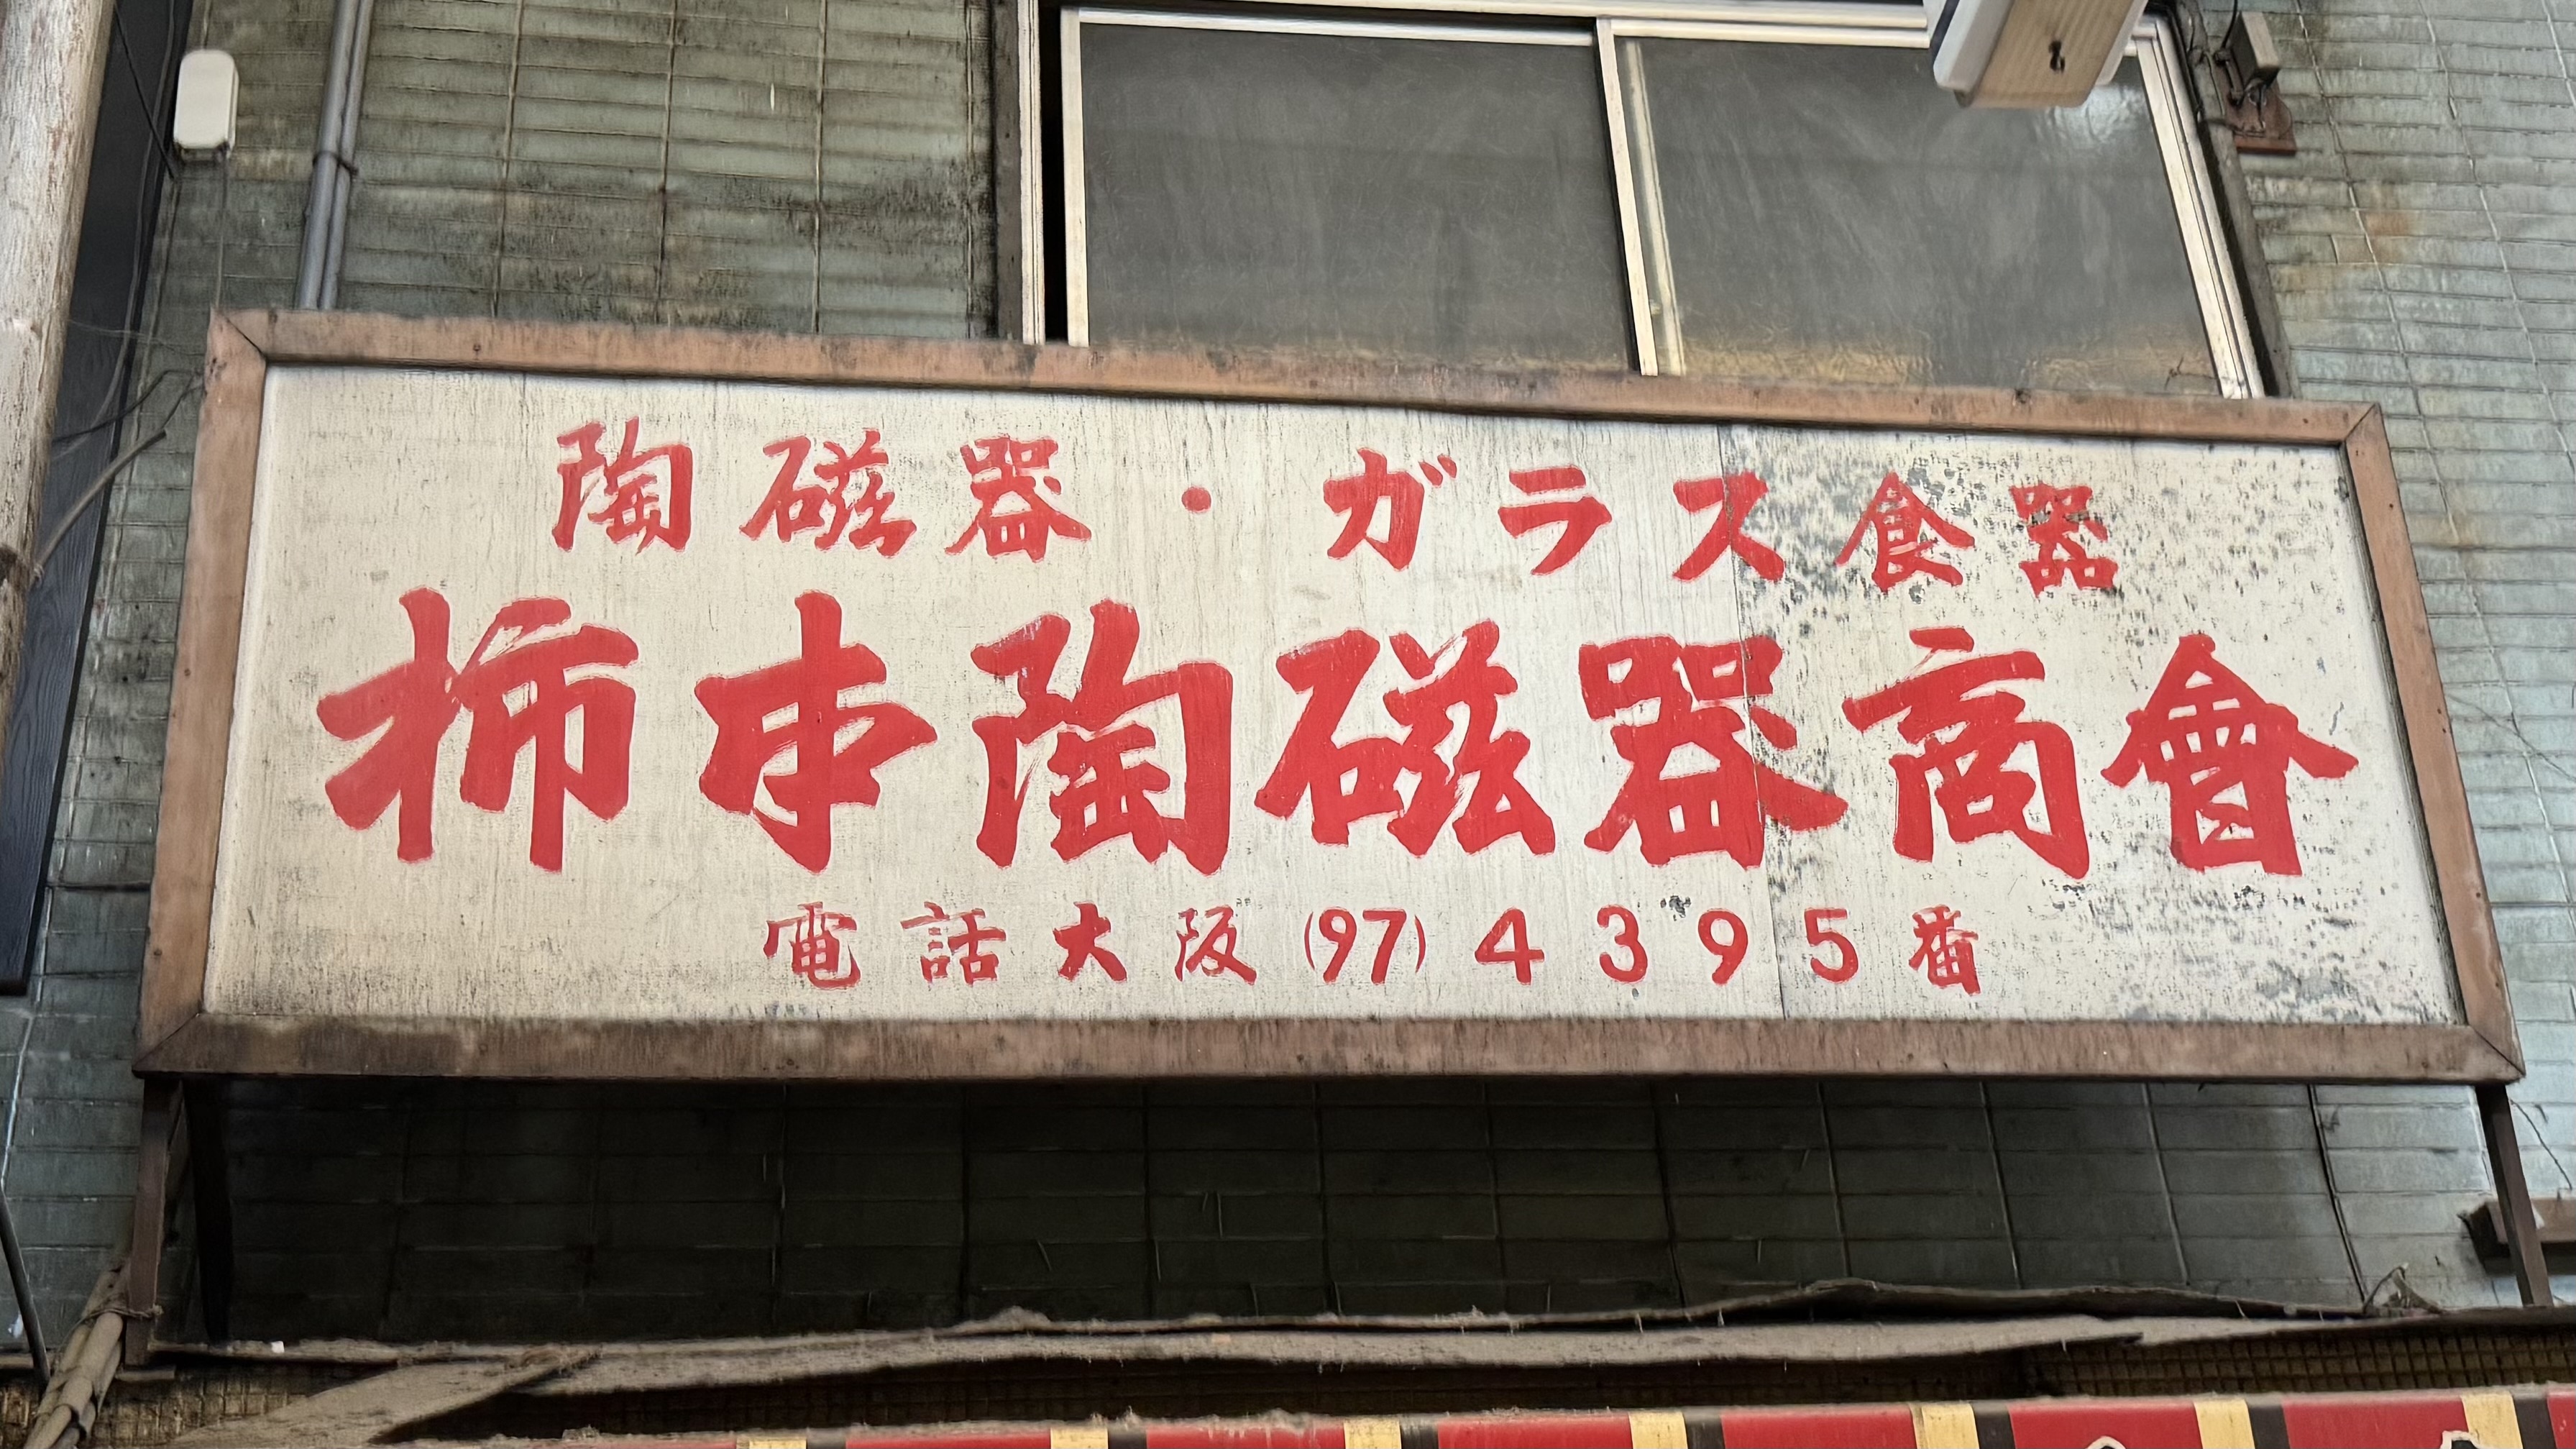 陶磁器・ガラス食器
柿本陶磁器商會
電話大阪(97)4395番